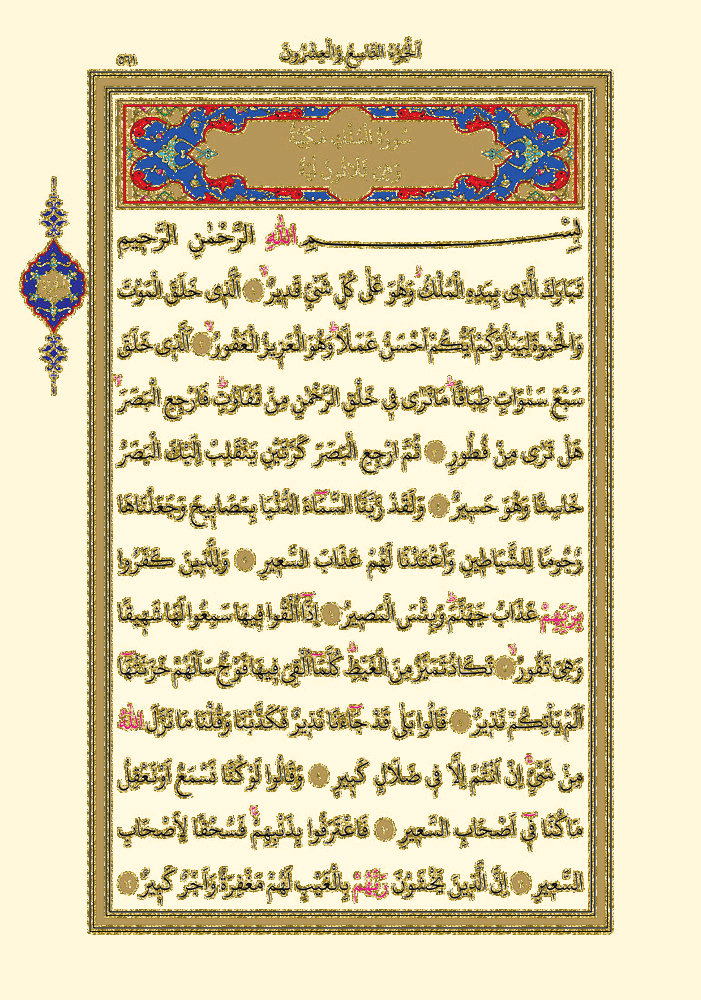 اَلْجُزْءُ التَّاسِعُ وَالْعِشْرُونَ
٥٦١
سُورَةُ الْمُلْكِ مَكِّيَّةٌ
وَهِيَ ثَلَاثُونَ اٰيَةً
بِسْمِ اللّٰهِ الرَّحْمٰنِ الرَّحِيمِ
تَبَارَكَ الَّذِى بِيَدِهِ الْمُلْكُ وَهُوَ عَلٰى كُلِّ شَىْءٍ قَدِيرٌ ۝ اَلَّذِى خَلَقَ الْمَوْتَ
وَالْحَيٰوةَ لِيَبْلُوَكُمْ اَيُّكُمْ اَحْسَنُ عَمَلًا وَهُوَ الْعَزِيزُ الْغَفُورُ ۝ اَلَّذِى خَلَقَ
سَبْعَ سَمٰوَاتٍ طِبَاقًا مَا تَرٰى فِى خَلْقِ الرَّحْمٰنِ مِنْ تَفَاوُتٍ فَارْجِعِ الْبَصَرَ
هَلْ تَرٰى مِنْ فُطُورٍ ۝ ثُمَّ ارْجِعِ الْبَصَرَ كَرَّتَيْنِ يَنْقَلِبْ اِلَيْكَ الْبَصَرُ
خَاسِئًا وَهُوَ حَسِيرٌ ۝ وَلَقَدْ زَيَّنَّا السَّمَاءَ الدُّنْيَا بِمَصَابِيحَ وَجَعَلْنَاهَا
رُجُومًا لِلشَّيَاطِينِ وَاَعْتَدْنَا لَهُمْ عَذَابَ السَّعِيرِ ۝ وَلِلَّذِينَ كَفَرُوا
بِرَبِّهِمْ عَذَابُ جَهَنَّمَ وَبِئْسَ الْمَصِيرُ ۝ اِذَا اُلْقُوا فِيهَا سَمِعُوا لَهَا شَهِيقًا
وَهِىَ تَفُورُ ۝ تَكَادُ تَمَيَّزُ مِنَ الْغَيْظِ كُلَّمَا اُلْقِىَ فِيهَا فَوْجٌ سَاَلَهُمْ خَزَنَتُهَا
اَلَمْ يَاْتِكُمْ نَذِيرٌ ۝ قَالُوا بَلٰى قَدْ جَاءَنَا نَذِيرٌ فَكَذَّبْنَا وَقُلْنَا مَا نَزَّلَ اللّٰهُ
مِنْ شَىْءٍ اِنْ اَنْتُمْ اِلَّا فِى ضَلَالٍ كَبِيرٍ ۝ وَقَالُوا لَوْ كُنَّا نَسْمَعُ اَوْ نَعْقِلُ
مَا كُنَّا فِى اَصْحَابِ السَّعِيرِ ۝ فَاعْتَرَفُوا بِذَنْبِهِمْ فَسُحْقًا لِاَصْحَابِ
السَّعِيرِ ۝ اِنَّ الَّذِينَ يَخْشَوْنَ رَبَّهُمْ بِالْغَيْبِ لَهُمْ مَغْفِرَةٌ وَاَجْرٌ كَبِيرٌ ۝